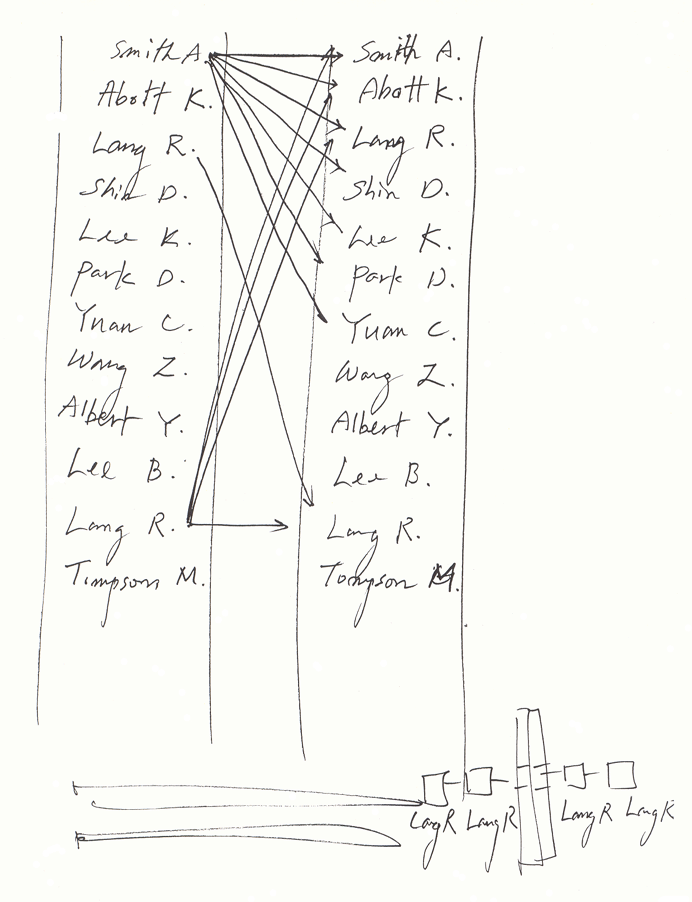 Smith A. Smith A.
Abott K. Abott K.
Lang R. Lang R.
Shin D. Shin D.
Lee K. Lee K.
Park D. Park D.
Yuan C. Yuan C.
Wang Z. Wang Z.
Albert Y. Albert Y.
Lee B. Lee B.
Lang R. Lang R.
Timpson M. Tompson M.
Lang R Lang R Lang R Lang R